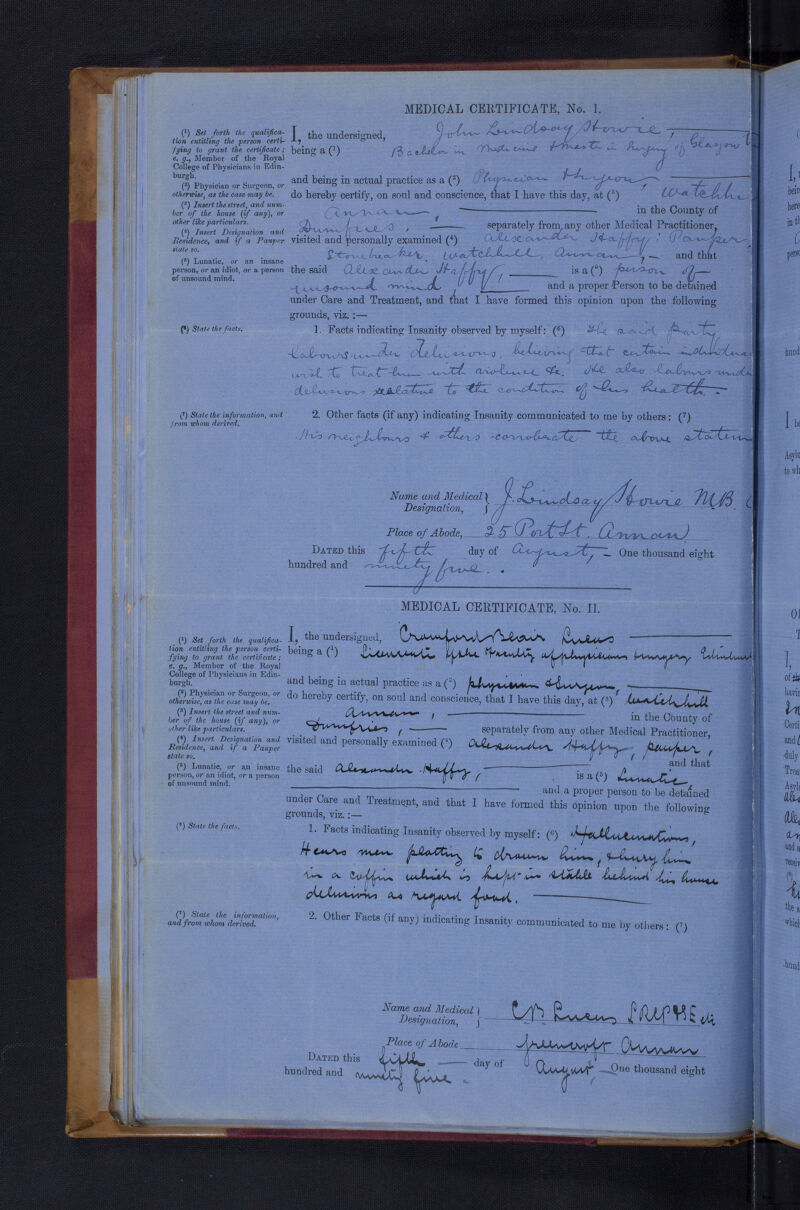 MEDICAL CERTIFICATE, No. I.
(¹) Set forth the qualifica-
tion entitling the person certi-
fying to grant the certificate;
e. g., Member of the Royal
College of Physicians in Edin-
burgh.
(²) Physician or Surgeon, or
otherwise, as the case may be.
(³) Insert the street, and num-
ber of the house (if any), or
other like particulars.
(⁴) Insert Designation and
Residence, and if a Pauper
state so.
(⁵) Lunatic, or an insane
person, or an idiot, or a person
of unsound mind.
(⁶) State the facts.
(⁷) State the information, and
from whom derived.
I, the undersigned, John Lindsay Howie,
being a (¹) Bachelor in Medicine & Master in Surgery of Glasgow
and being in actual practice as a (²) Physician & Surgeon,
do hereby certify, on soul and conscience, that I have this day, at (³) Watchhill
Annan, in the County of
Dumfries, separately from any other Medical Practitioner,
visited and personally examined (⁴) Alexander Haffey, Pauper
Stonebreaker, Watchhill, Annan, and that
the said Alexander Haffey, is a (⁵) person of
unsound mind and a proper Person to be detained
under Care and Treatment, and that I have formed this opinion upon the following
grounds, viz. :—
1. Facts indicating Insanity observed by myself: (⁶) The said party
labours under delusions, believing that certain individuals
wish to treat him with violence &c. He also labours under
delusions relative to the condition of his health.
2. Other facts (if any) indicating Insanity communicated to me by others: (⁷)
His neighbours & others corroborate the above
Name and Medical Designation, J. Lindsay Howie M.B.
Place of Abode, 25 Port St. Annan
DATED this fifth day of August, One thousand eight
hundred and ninety five.
MEDICAL CERTIFICATE, No. II.
(¹) Set forth the qualifica-
tion entitling the person certi-
fying to grant the certificate;
e. g., Member of the Royal
College of Physicians in Edin-
burgh.
(²) Physician or Surgeon, or
otherwise, as the case may be.
(³) Insert the street, and num-
ber of the house (if any), or
other like particulars.
(⁴) Insert Designation and
Residence, and if a Pauper
state so.
(⁵) Lunatic, or an insane
person, or an idiot, or a person
of unsound mind.
(⁶) State the facts.
(⁷) State the information,
and from whom derived.
I, the undersigned, Crawford Blair
being a (¹) Licentiate of the Faculty of physicians & surgery
and being in actual practice as a (²) physician & surgeon,
do hereby certify, on soul and conscience, that I have this day, at (³) Watchhill
Annan, in the County of
Dumfries, separately from any other Medical Practitioner,
visited and personally examined (⁴) Alexander Haffey, pauper,
and that
the said Alexander Haffey, is a (⁵) Lunatic,
and a proper person to be detained
under Care and Treatment, and that I have formed this opinion upon the following
grounds, viz. :—
1. Facts indicating Insanity observed by myself: (⁶) Hallucinations,
Hears men plotting to drown him, & bury him
in a coffin which is kept in stable behind his house
delusions as regard food.
2. Other Facts (if any) indicating Insanity communicated to me by others: (⁷)
Name and Medical Designation,
Place of Abode Annan
DATED this fifth day of August One thousand eight
hundred and ninety five